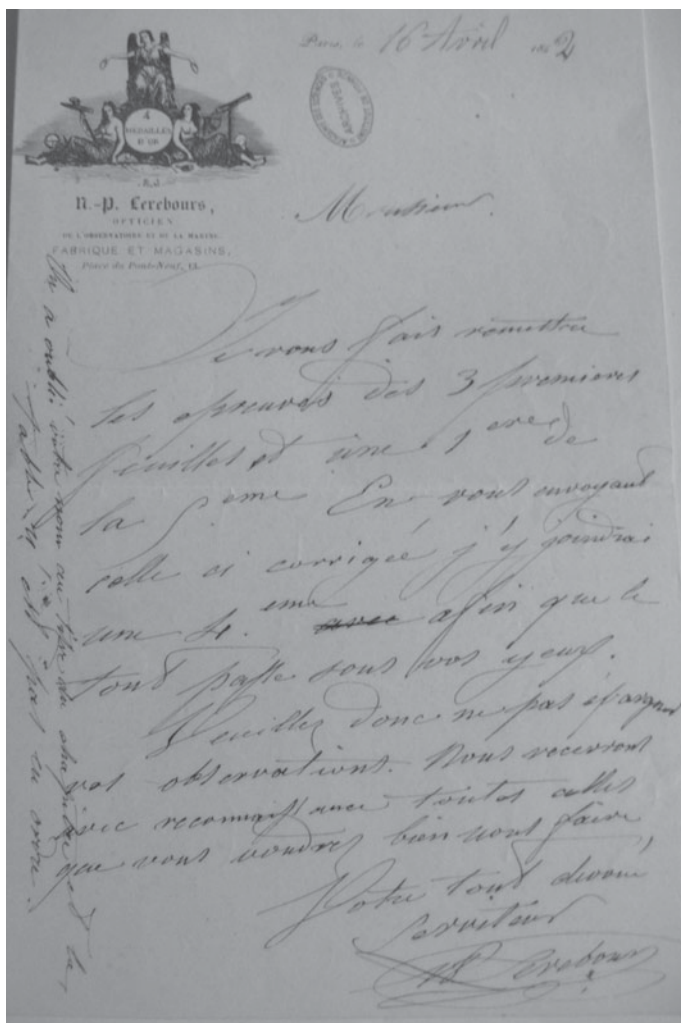 Paris, le 16 Avril 1842
4
MEDAILLES
D'OR
N.-P. Lerebours,
OPTICIEN
DE L'OBSERVATOIRE ET DE LA MARINE.
FABRIQUE ET MAGASINS,
Place du Pont-Neuf, 13.
ARCHIVES
Monsieur.
Je vous fais remettre
les epreuves des 3 premieres
feuilles et une 1ere de
la 5eme En vous envoyant
celle ci corrigée j'y joindrai
une 4.eme afin que le
tout passe sous vos yeux.
Veuillez donc ne pas épargner
vos observations. Nous recevrons
avec reconnaissance toutes celles
que vous voudrez bien nous faire,
Votre tout devoué
Serviteur
Lerebours
On a oublié votre nom au titre du chapitre et la
table n'est pas en ordre.